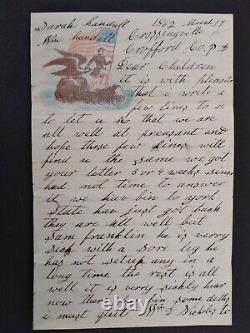 Sarah Randall 1862 March 17
Wm Randall Crossingville
Crofford Co. p a
Dear Children
it is with pleasur
that i write a
few lines to u
to let u no that we are
all well at preasant and
hope those few lines will
find u the same we got
your letter 3 or 4 weeks sinse
had not time to answer
it we hav bin to york
State hav just got back
they are all well but
Sam franklin he is verry
Sick with a Sore leg he
has not setup any in a
long time the rest is all
well it is verry sickly hear
now thare has bin some deths
i must quit